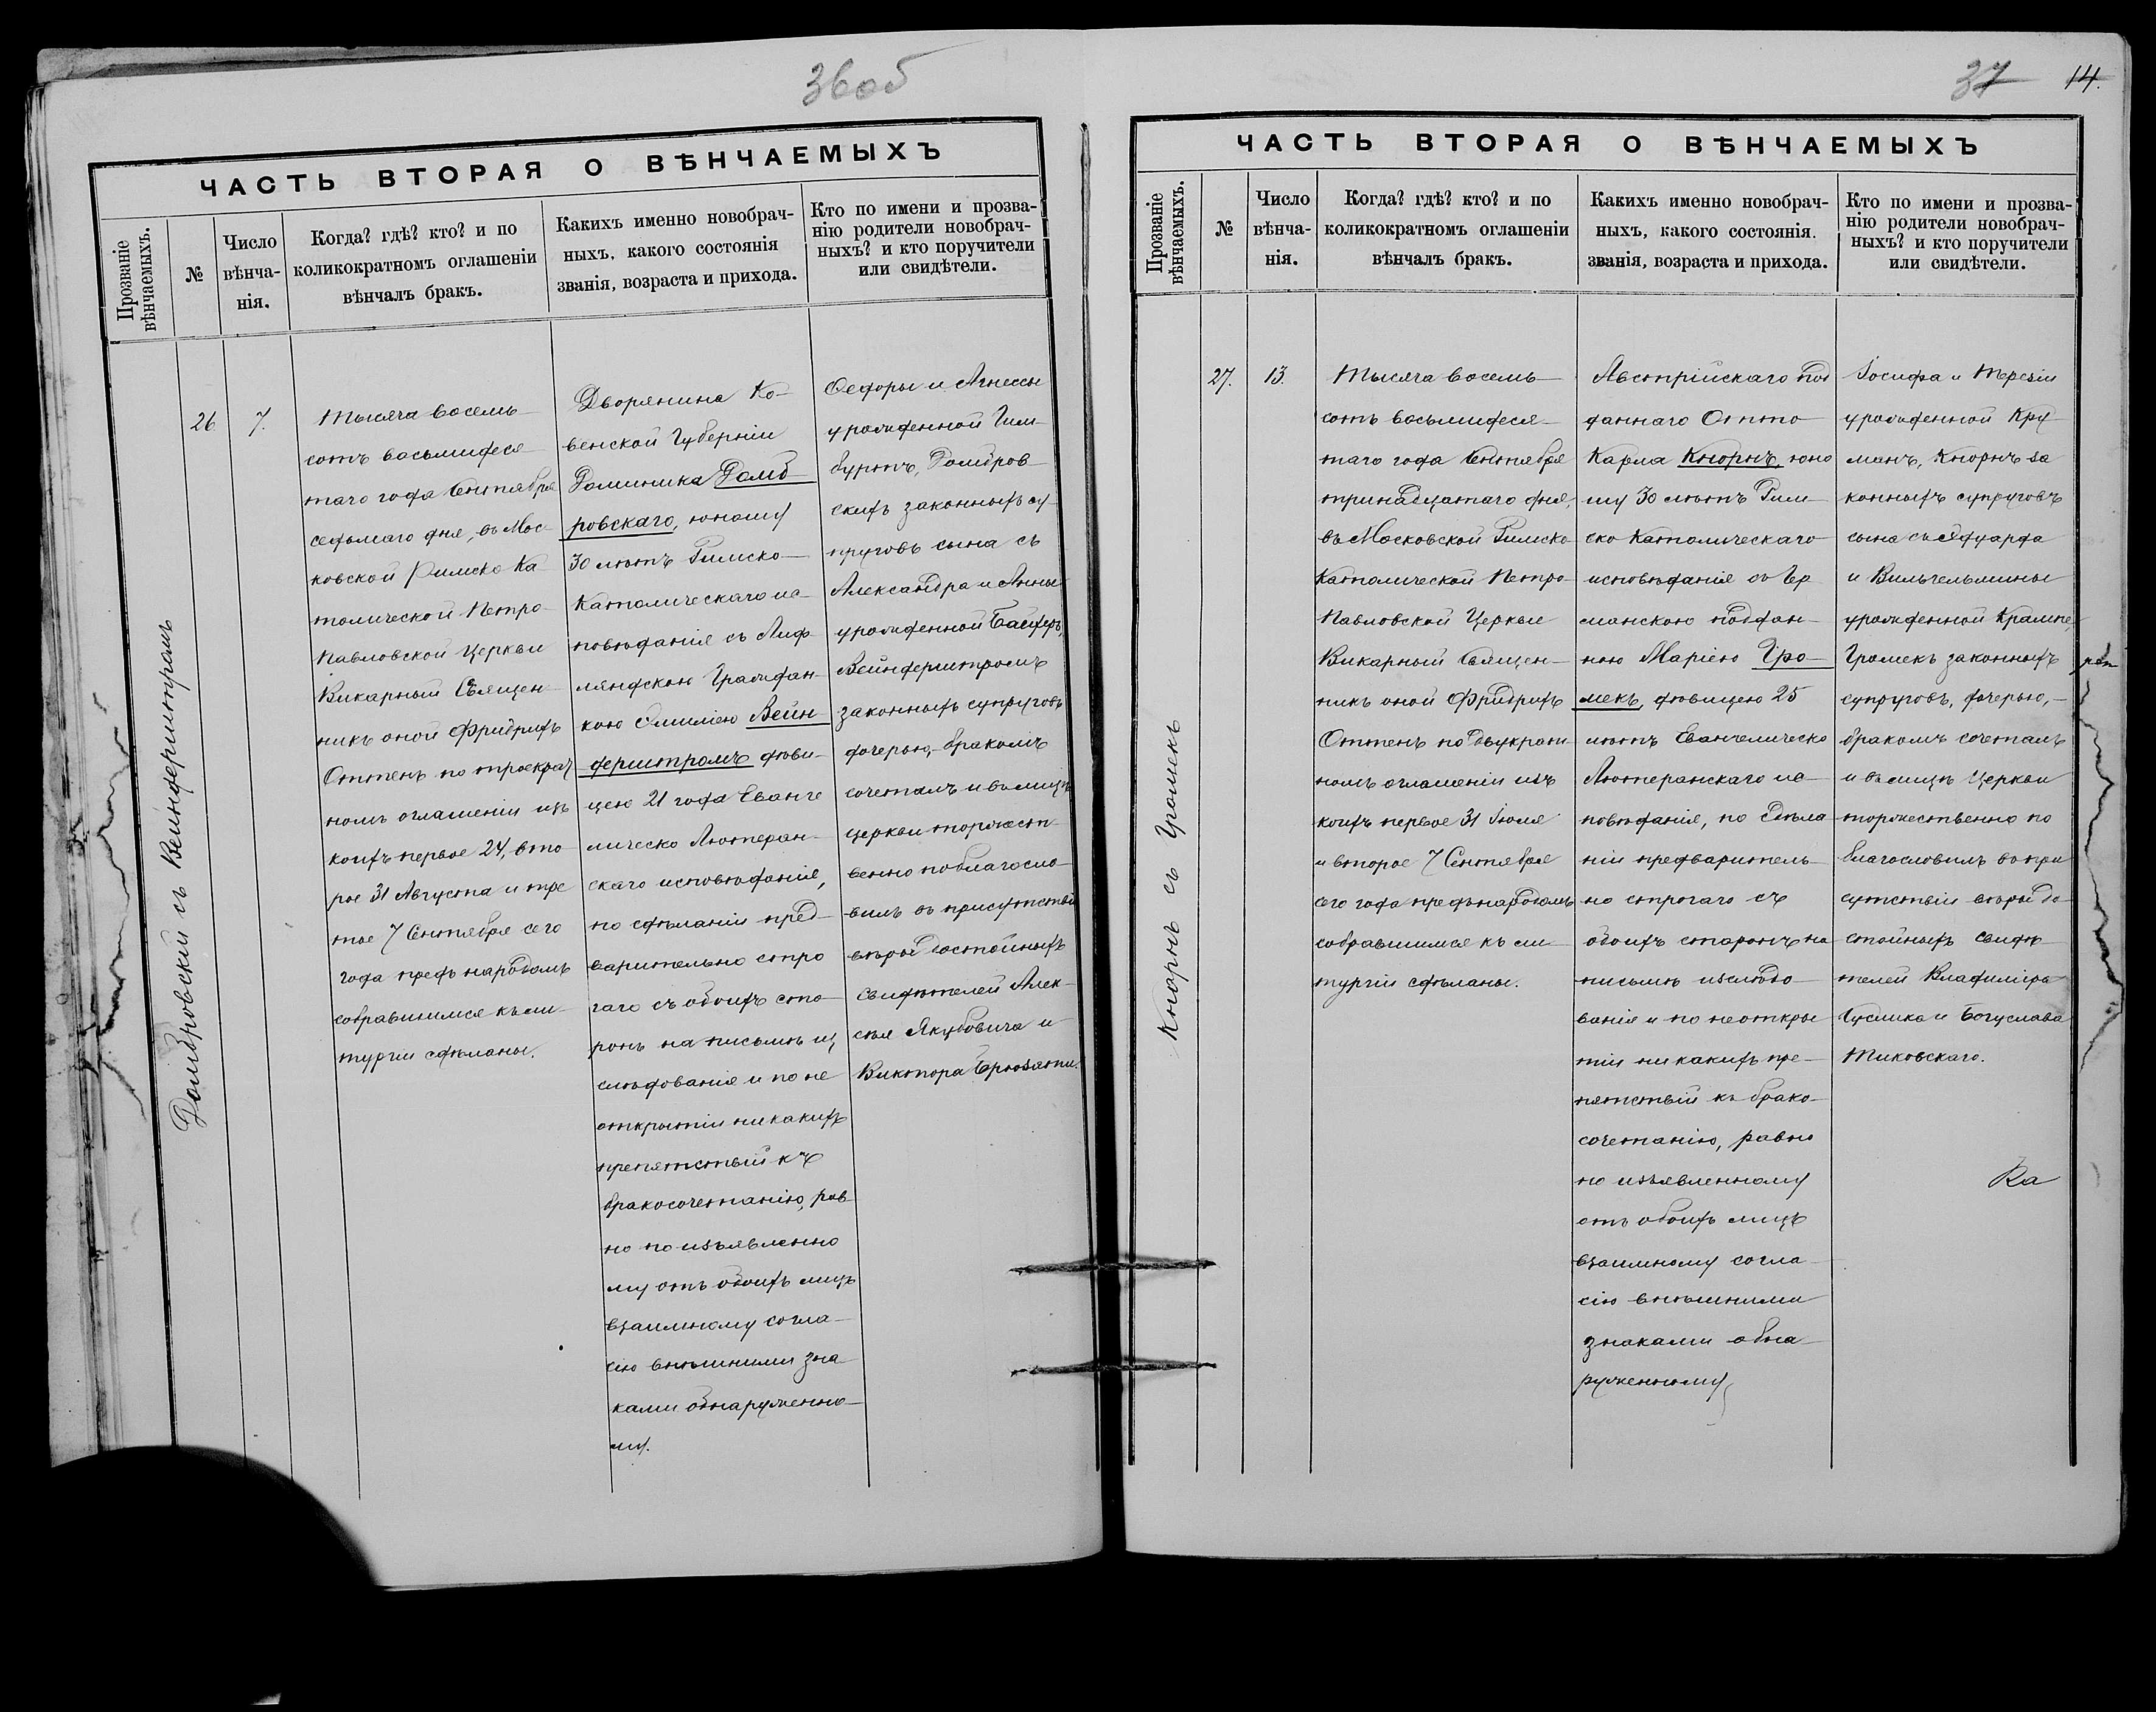 36об
ЧАСТЬ ВТОРАЯ О ВѢНЧАЕМЫХЪ
Прозваніе
вѣнчаемыхъ.
№
Число
вѣнча-
нія.
Когда? гдѣ? кто? и по
коликократномъ оглашеніи
вѣнчалъ бракъ.
Какихъ именно новобрач-
ныхъ, какого состоянія
званія, возраста и прихода.
Кто по имени и прозва-
нію родители новобрач-
ныхъ? и кто поручители
или свидѣтели.
Домбровскій съ Вейнферштромъ
26
7.
Тысяча восемь
сотъ восьмидеся
таго года Сентября
седьмаго дня, въ Мос
ковской Римско Ка
толической Петро-
Павловской Церкви
Викарный Священ
никъ оной Фридрихъ
Оттенъ по троекрат
номъ оглашеніи изъ
коихъ первое 24, вто-
рое 31 Августа и тре
тье 7 Сентября сего
года предъ народомъ
собравшимся къ ли-
тургіи сдѣланы.
Дворянина Ко-
венской Губерніи
Доминика Домб-
ровскаго, юношу
30 лѣтъ Римско-
Католическаго ис-
повѣданія съ Лиф-
ляндскою Граждан-
кою Эмиліею Вейн-
ферштромъ дѣви-
цею 21 года Еванге
лическо Лютеран-
скаго исповѣданія,
по сдѣланіи пред-
варительно стро
гаго съ обоихъ сто-
ронъ на письмѣ из
слѣдованія и по не
открытіи никакихъ
препятствій къ
бракосочетанію, рав
но по изъявленно
му отъ обоихъ лицъ
взаимному согла-
сію внѣшними зна
ками обнаруженно-
му.
Феодоры и Агнессы
урожденной Гим-
бутъ, Домбров-
скихъ законныхъ су-
пруговъ сына съ
Александра и Анны
урожденной
Вейнферштромъ
законныхъ супруговъ
дочерью,- бракомъ
сочеталъ и въ лицѣ
церкви торжест-
венно поблагосло-
вилъ въ присутствіи
вѣры достойныхъ
свидѣтелей Алек-
сѣя Якубовича и
Виктора
37 14.
ЧАСТЬ ВТОРАЯ О ВѢНЧАЕМЫХЪ
Прозваніе
вѣнчаемыхъ.
№
Число
вѣнча-
нія.
Когда? гдѣ? кто? и по
коликократномъ оглашеніи
вѣнчалъ бракъ.
Какихъ именно новобрач-
ныхъ, какого состоянія.
званія, возраста и прихода.
Кто по имени и прозва-
нію родители новобрач-
ныхъ? и кто поручители
или свидѣтели.
Кнорнъ съ Громекъ
27.
13.
Тысяча восемь-
сотъ восьмидеся-
таго года Сентября
тринадцатаго дня,
въ Московской Римско
Католической Петро-
Павловской Церкви
Викарный Священ-
никъ оной Фридрихъ
Оттенъ по двукрат-
номъ оглашеніи изъ
коихъ первое 31 Іюля
и второе 7 Сентября
сего года предъ народомъ
собравшимся къ ли-
тургіи сдѣланы.
Австрійскаго под
даннаго Отто
Карла Кнорнъ, юно
шу 30 лѣтъ Рим-
ско Католическаго
исповѣданія съ Гер
манскою поддан-
ною Маріею Гро-
мекъ, дѣвицею 25
лѣтъ Евангелическо
Лютеранскаго ис-
повѣданія, по сдѣла
ніи предваритель-
но строгаго съ
обоихъ сторонъ на
письмѣ изслѣдо-
ванія и по неоткры
тіи никакихъ пре-
пятствій къ брако-
сочетанію, равно
по изъявленному
отъ обоихъ лицъ
взаимному согла-
сію внѣшними
знаками обна-
руженному
Іосифа и Терезіи
урожденной Кру
манъ, Кнорнъ за
конныхъ супруговъ
сына съ Эдуарда
и Вильгельмины
урожденной Крампе,
Громекъ законныхъ
супруговъ, дочерью,-
бракомъ сочеталъ
и въ лицѣ Церкви
торжественно по
благословилъ въ при
сутствіи вѣры до-
стойныхъ свидѣ-
телей Владиміра
Суслика и Богуслава
Тиковскаго.
Ка